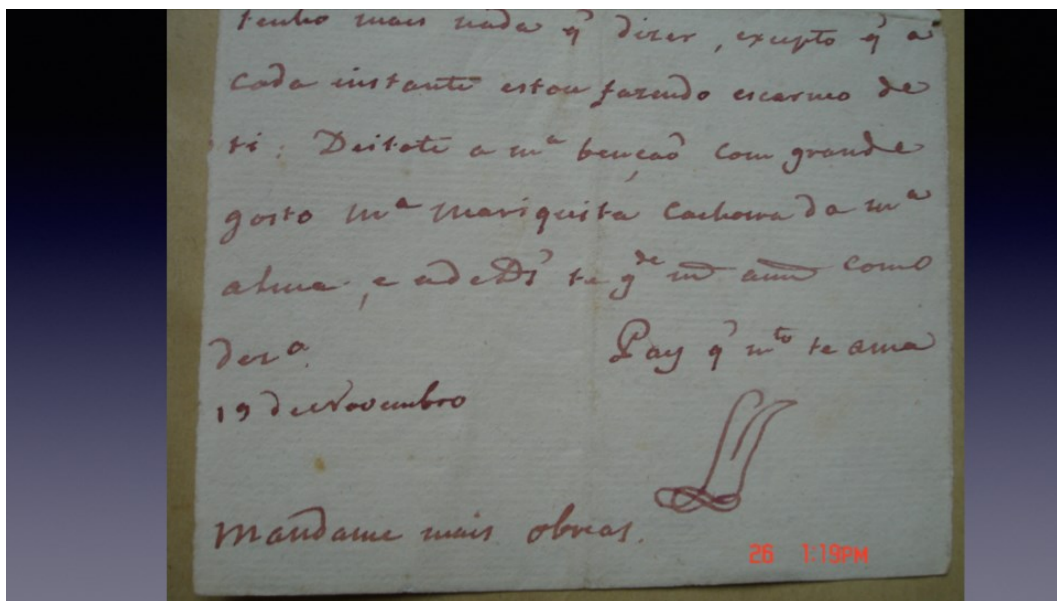 tenho mais nada q̃ dizer, excepto q̃ a
cada instante estou fazendo escarneo de
ti: Deitote a mª bençaõ com grande
gosto mª Mariquita Cachorra da mª
alma, e a Ds̃ te gde como
Pay q̃ mto te ama
19 de Novembro
Mandame mais obreas.
26 1:19PM